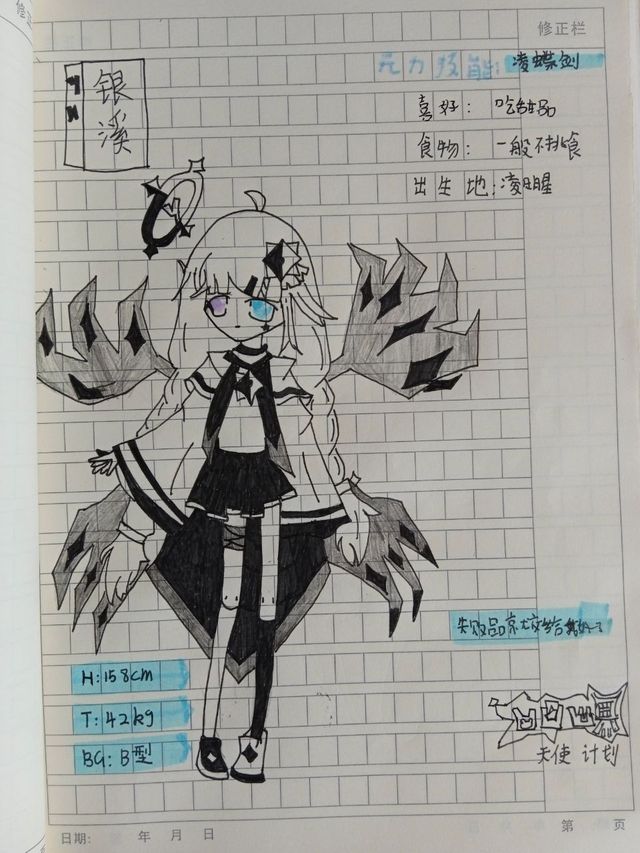 修正栏
元力技能: 凌蝶剑
银溪
喜好: 吃甜品
食物: 一般不挑食
出生地: 凌明星
失败品就交给我
H:158cm
T:42kg
BG:B型
天使 计划
日期: 年 月 日
第 页